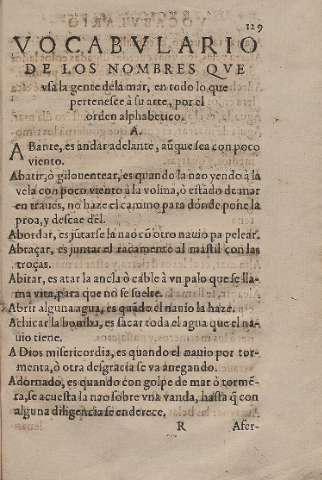 129
VOCABVLARIO
DE LOS NOMBRES QVE
vsa la gente dela mar, en todo lo que
pertenesce à su arte, por el
orden alphabetico.
A.
ABante, es andar adelante, aũque sea con poco
viento.
Abatir, ò gilouentear, es quando la nao yendo à la
vela con poco viento à la volina, ò estãdo de mar
en traues, no haze el camino para dõnde pone la
proa, y descae dèl.
Abordar, es jũtarse la nao cũ otro nauio pa pelear.
Abraçar, es juntar el racamento al mastil con las
troças.
Abitar, es atar la ancla ò cable à vn palo que se lla-
ma vita, para que no se suelte.
Abrir alguna agua, es quãdo el nauio la haze.
Achicar la bomba, es sacar toda el agua que el na-
uio tiene.
A Dios misericordia, es quando el nauio por tor-
menta, ò otra desgracia se va anegando.
Adornado, es quando con golpe de mar ò tormẽ-
ta, se acuesta la nao sobre vna vanda, hasta q̃ con
alguna diligencia se enderece.
R Afer-